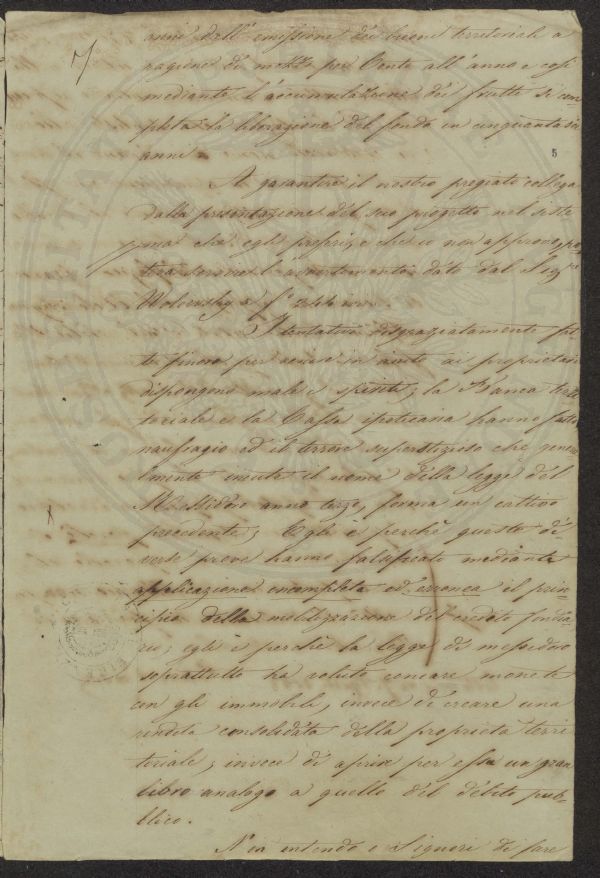 anni dall'emissione dei buoni territoriali a
ragione di mezzo per Cento all'anno e così
mediante l'accumulazione dei frutti si com
pleta la liberazione del fondo in cinquanta sei
anni.
5
A garantire il nostro pregiato collega
dalla presentazione del suo progetto nel siste
ma che egli preferisce e che io non approvo, po
tra l'avvertimento dato dal Sigre
Wolowsky a
I tentativi disgraziatamente fat
ti finora per venire in aiuto ai proprietari
dispongono male i spiriti; la Banca terri
toriale e la Cassa ipotecaria hanno fatto
naufragio ed il terrore superstizioso che genera
lmente incute il nome della legge del
Messidoro anno terzo, forma un cattivo
precedente; Egli è perchè queste di
verse prove hanno falsificato mediante
applicazione incompleta ed erronea il prin
cipio della mobilizzazione del credito fondia
rio; egli è perchè la legge di messidoro
soprattutto ha voluto coniare moneta
con gli immobili, invece di creare una
rendita consolidata della proprietà terri
toriale, invece di aprire per essa un gran
libro analogo a quello del debito pub-
blico.
Non intendo o Signori di fare